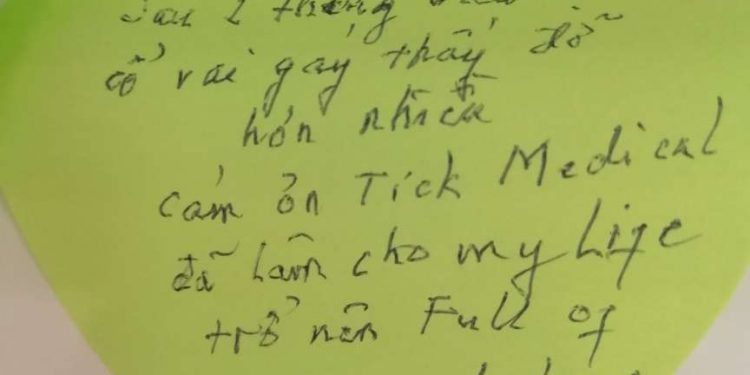 cổ vai gáy thấy đỡ
hơn nhiều
cảm ơn Tick Medical
đã làm cho my Life
trở nên Full of